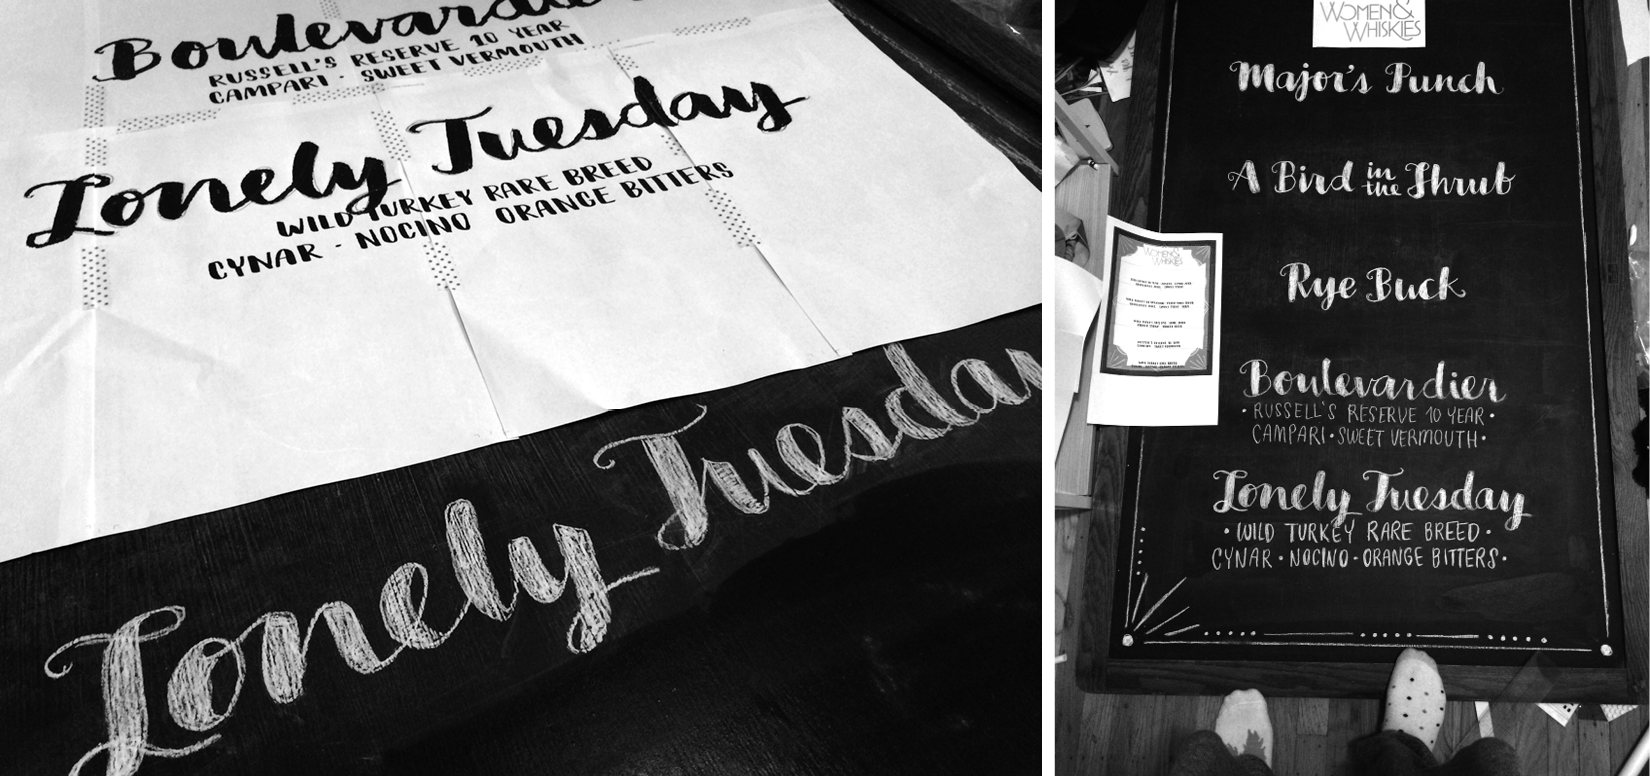 Boulevardie
RUSSELL'S RESERVE 10 YEAR
CAMPARI · SWEET VERMOUTH
Lonely Tuesday
WILD TURKEY RARE BREED
CYNAR · NOCINO ORANGE BITTERS
Lonely Tuesday
WOMEN &
WHISKIES
Major's Punch
A Bird in the Shrub
Rye Buck
Boulevardier
• RUSSELL'S RESERVE 10 YEAR •
CAMPARI • SWEET VERMOUTH •
Lonely Tuesday
• WILD TURKEY RARE BREED •
CYNAR • NOCINO • ORANGE BITTERS •
WOMEN &
WHISKIES